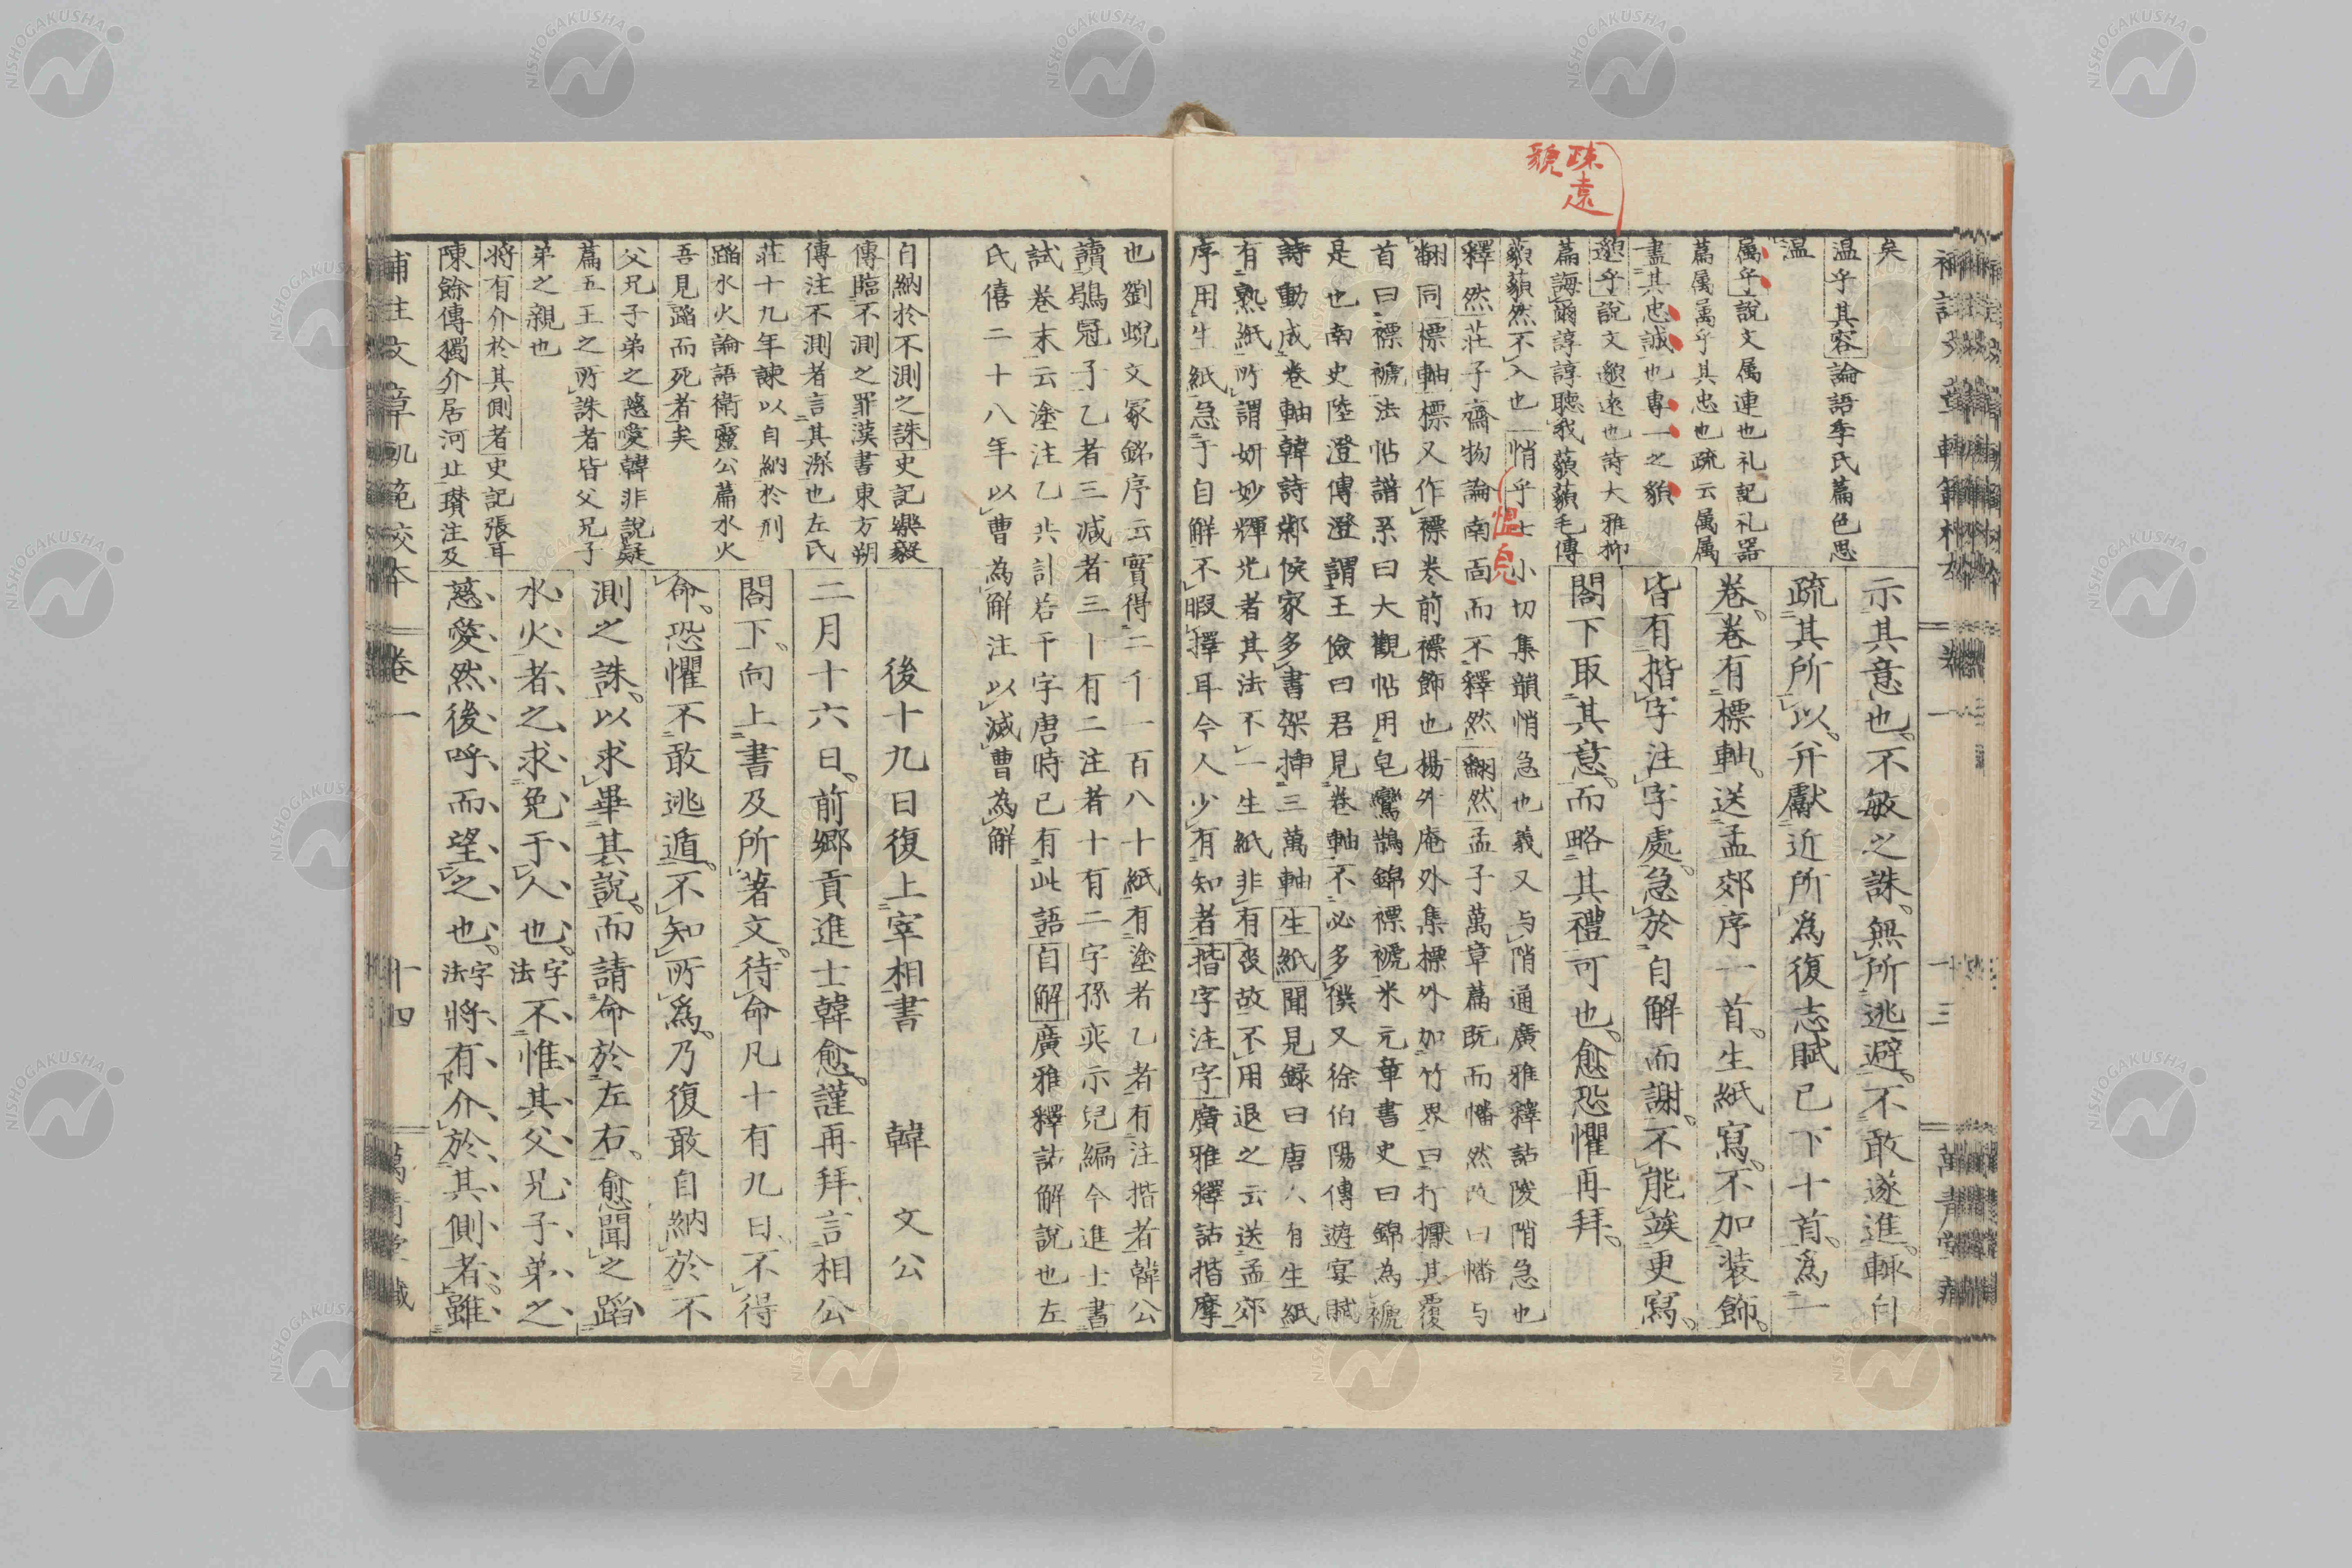 疎遠
貌
矣
温乎其容論語季氏篇色思
温
属乎說文属連也礼記礼器
篇属属乎其忠也疏云属属
盡其忠誠也專一之貌
邈乎說文邈遠也詩大雅抑
篇誨爾諄諄聽我藐藐毛傳
藐藐然不入也
悄乎
愠皃
小切集韻悄急也義又与陗通廣雅釋詁陵陗急也
釋然莊子齋物論南面而不釋然
翻然孟子萬章篇既而幡然改曰幡与
翻同標軸標又作褾卷前褾飾也楊升庵外集標外加竹界曰打擫其覆
首曰褾褫法帖譜系曰大觀帖用皂鸞鵲錦褾褫米元章書史曰錦為褫
是也南史陸澄傳澄謂王儉曰君見卷軸不必多僕又徐伯陽傳遊宴賦
詩動成卷軸韓詩鄴侯家多書架揷三萬軸生紙聞見録曰唐人有生紙
有熟紙所謂妍妙輝光者其法不一生紙非有喪故不用退之云送孟郊
序用生紙急于自解不暇擇耳今人少有知者揩字注字廣雅釋詁揩摩
示其意也不敏之誅無所逃避不敢遂進輙自
疏其所以并獻近所爲復志賦已下十首爲一
卷卷有標軸送孟郊序一首生紙寫不加装飾
皆有揩字注字處急於自解而謝不能竢更寫
閣下取其意而略其禮可也愈恐懼再拜
也劉蛻文冢銘序云實得二千一百八十紙有塗者乙者有注揩者韓公
讀鶡冠子乙者三滅者三十有二注者十有二字孫奕示兒編今進士書
試卷末云塗注乙共計若干字唐時已有此語自解廣雅釋詁解說也左
氏僖二十八年以曹為解注以滅曹為解
自納於不測之誅史記樂毅
傳臨不測之罪漢書東方朔
傳注不測者言其深也左氏
莊十九年諫以自納於刑
蹈水火論語衛靈公篇水火
吾見蹈而死者矣
父兄子弟之慈愛韓非說疑
篇五王之所誅者皆父兄子
弟之親也
將有介於其側者史記張耳
陳餘傳獨介居河北瓚注及
後十九日復上宰相書　韓文公
二月十六日前鄉貢進士韓愈謹再拜言相公
閤下向上書及所著文待命凡十有九日不得
命恐懼不敢逃遁不知所爲乃復敢自納於不
測之誅以求畢其說而請命於左右愈聞之蹈
水火者之求免于人也字法不惟其父兄子弟之
慈愛然後呼而望之也字法將有介於其側者雖
補注文章軌範校本　卷一　十四